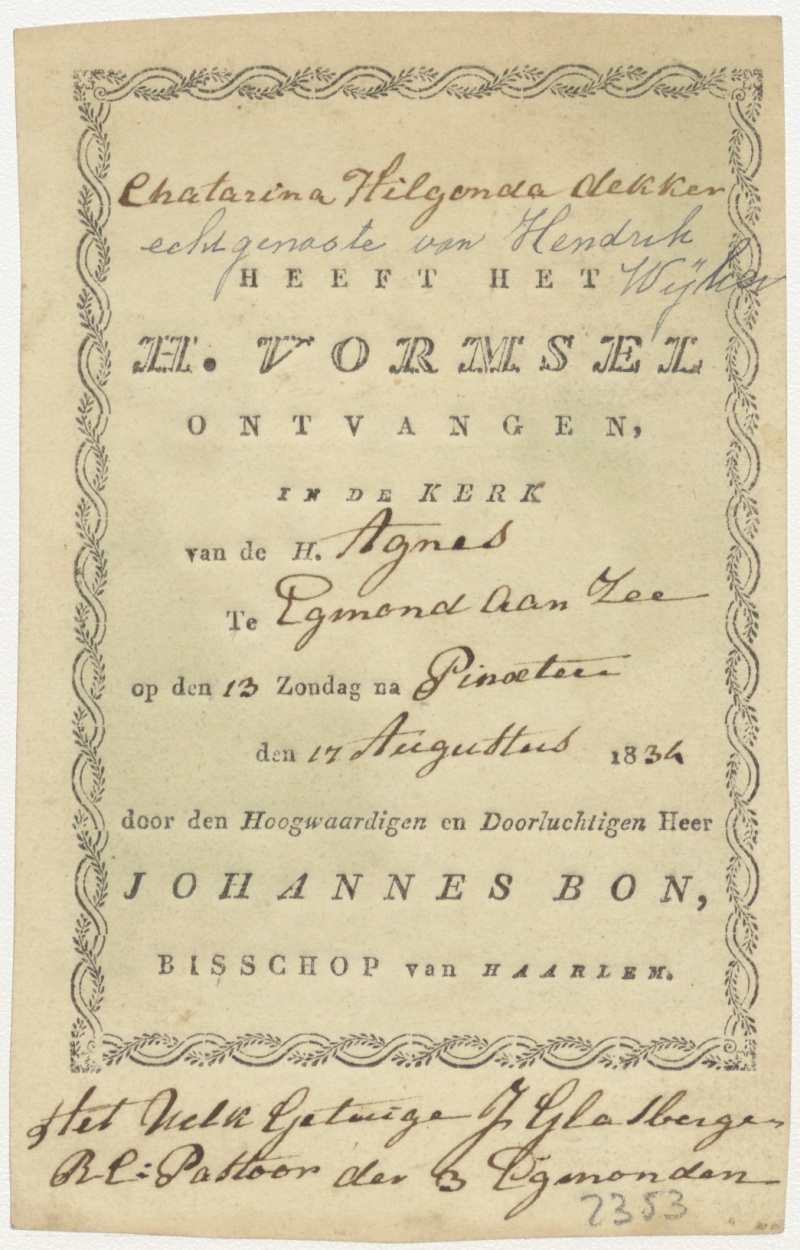 Chatarina Hilgonda dekker
echtgenoote van Hendrik
HEEFT HET Wijker
H. VORMSEL
ONTVANGEN,
IN DE KERK
van de H. Agnes
Te Egmond aan Zee
op den 13 Zondag na
den 17 Augustus 1834
door den Hoogwaardigen en Doorluchtigen Heer
JOHANNES BON,
BISSCHOP van HAARLEM.
Het Welk Getuige J Glasbergen
R C: Pastoor der 3 Egmonden
2353